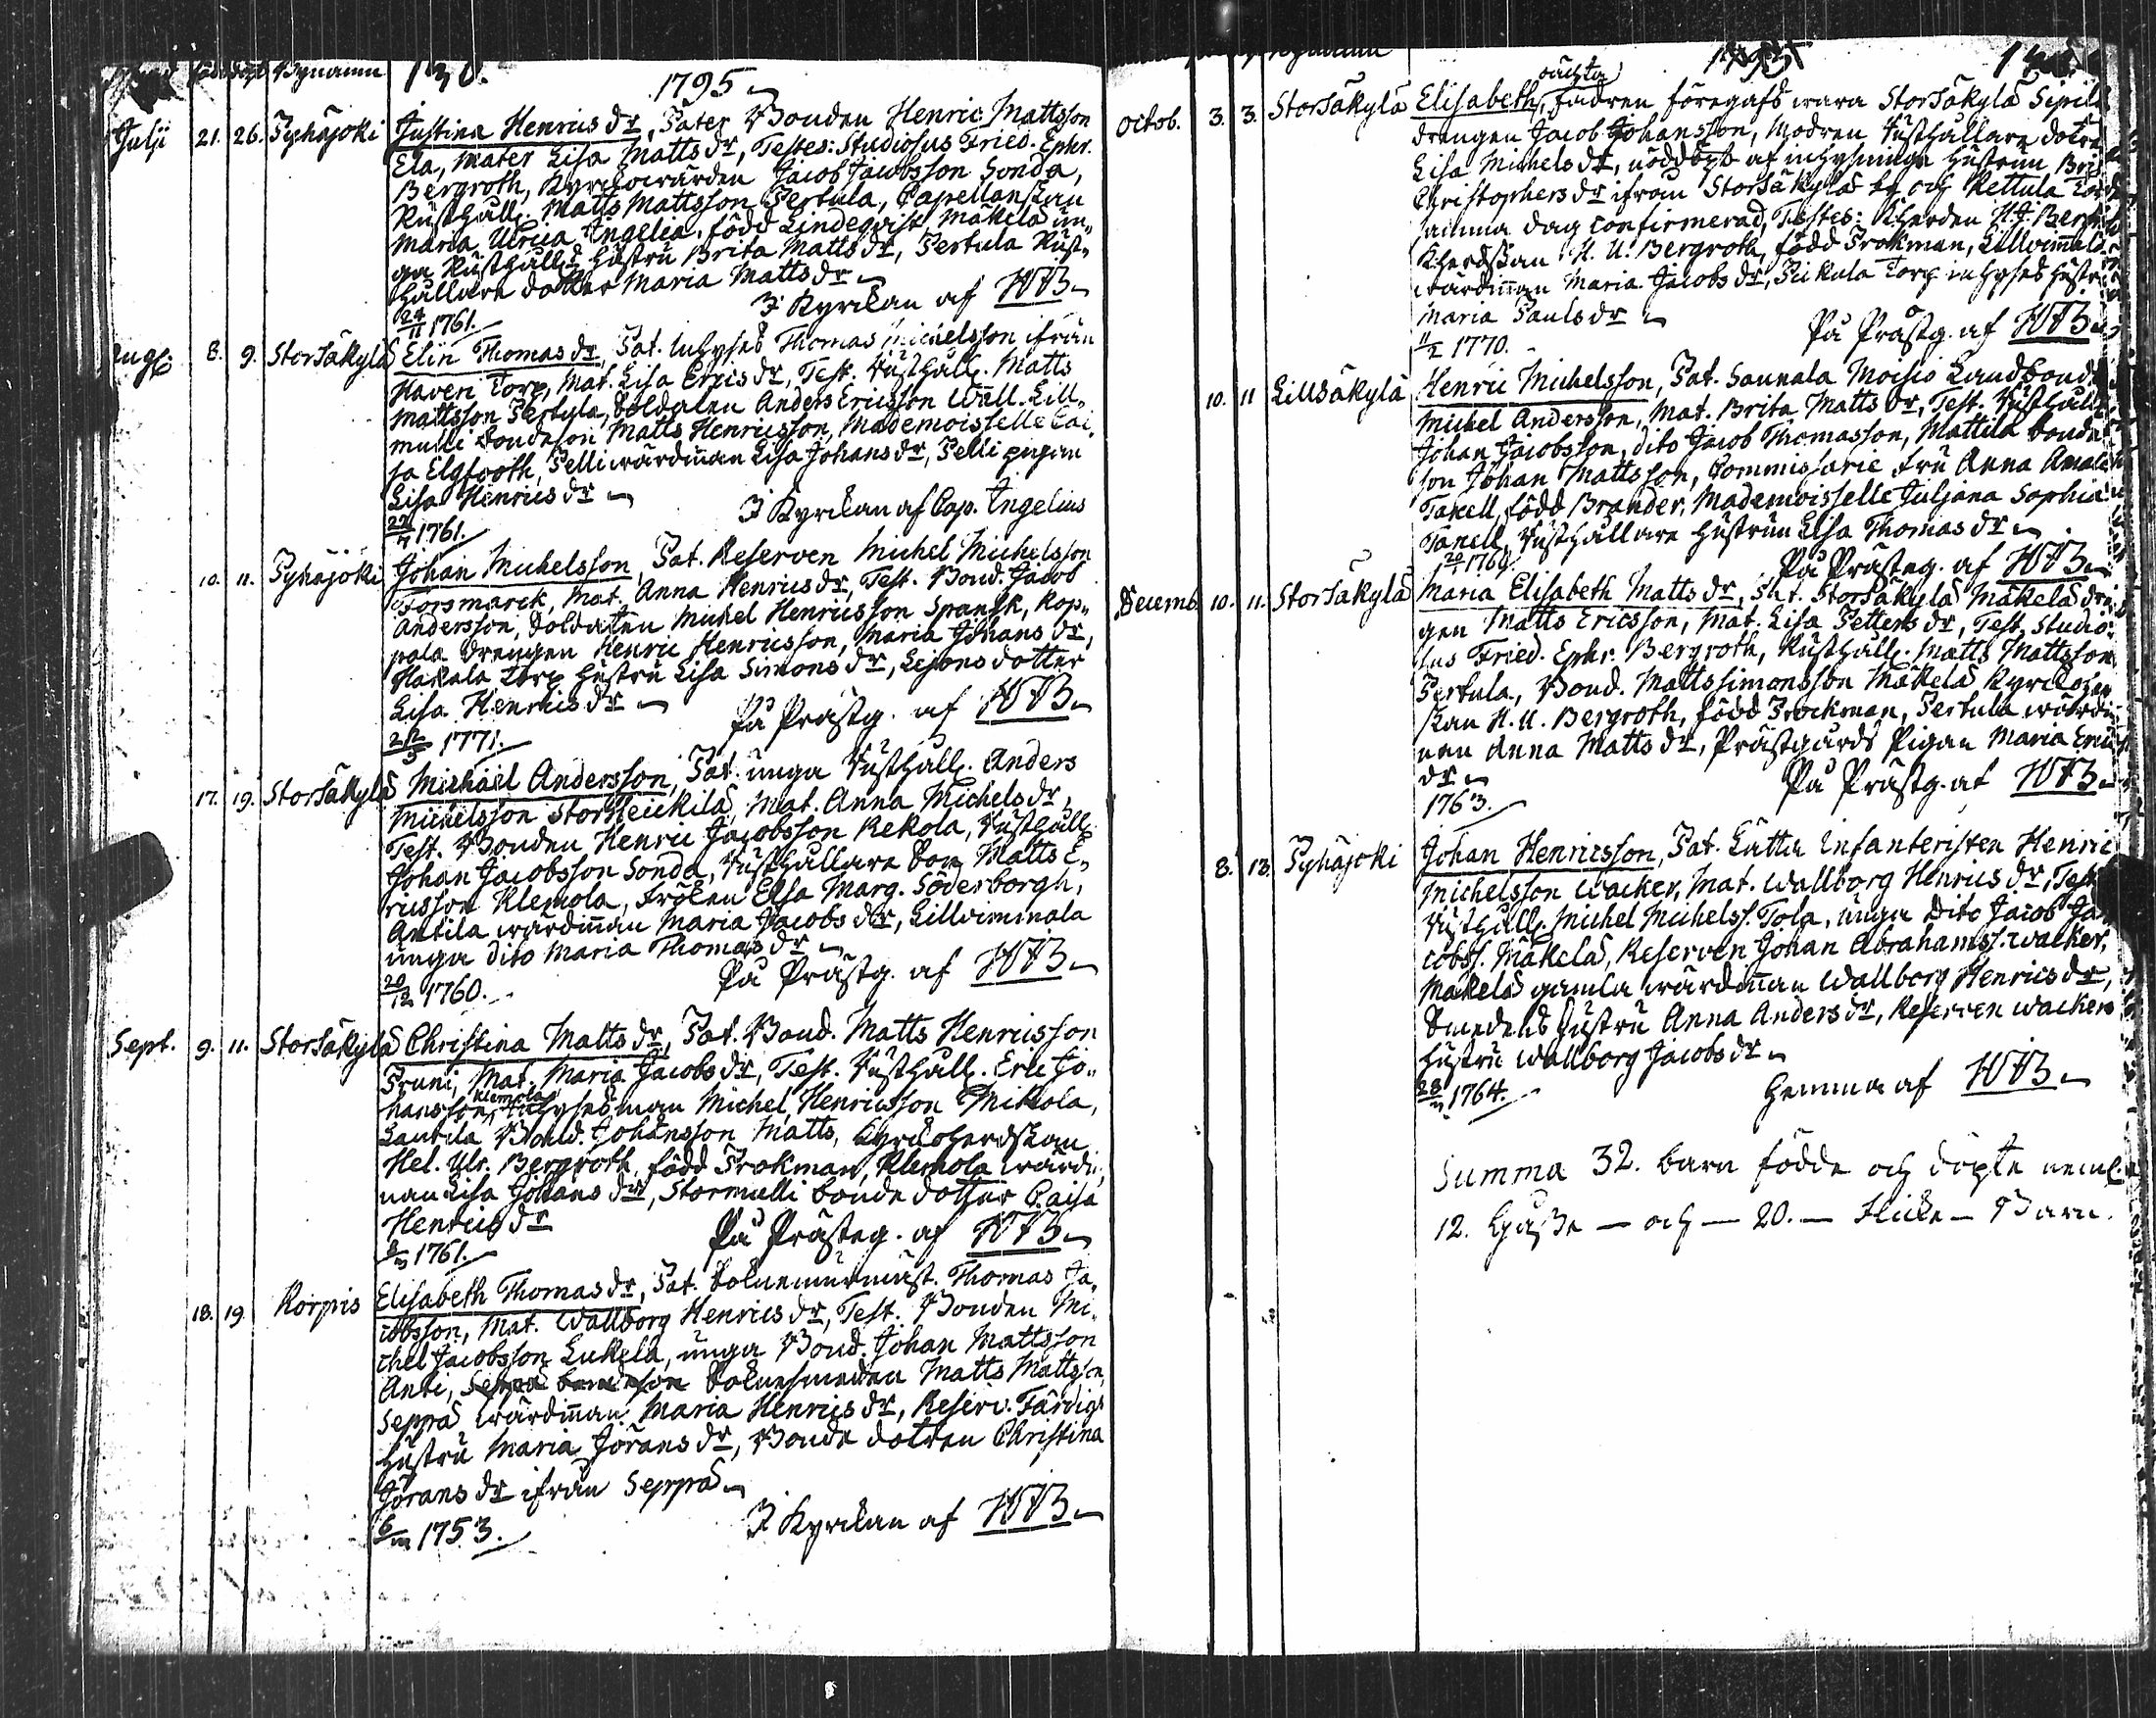 född döpt Bynamn 130. 1795
Julii 21. 26. Pyhäjoki Justina Henrics dr, Pater Bonden Henric Mattsson
Ela, Mater Lisa Matts dr, Testes: Studiosus Fried. Ephr.
Bergroth, Kyrckowärden Jacob Jacobsson Sonda,
Rusthåll. Matts Mattsson Pertula, Capellanskan
Maria Ulrica Ingelia, född Lindeqvist, Mäkelä un„
ga Rusthålls hustru Brita Matts dr, Pertula Rust„
hållare dotter Maria Matts dr
24/11 1761. I Kyrckan af HJB
Aug. 8. 9. Storsäkylä Elin Thomas dr, Pat. Inhyses Thomas Michelsson ifrån
Haveri Torp, Mat. Lisa Erics dr, Test. Rusthåll. Matts
Mattsson Pertula, Soldaten Anders Ericsson Wall. Lill„
mulli bondeson Matts Henricsson, Mademoiselle Cai„
sa Elgfooth, Pelli wärdinnan Lisa Johans dr, Pelli pigan
Lisa Henrics dr
I Kyrckan af Cap. Ingelius
1761.
10. 11. Pyhäjoki Johan Michelsson, Pat. Reserven Michel Michelsson
Forsmarck, Mat. Anna Henrics dr, Test. Bond. Jacob
Andersson, Soldaten Michel Henricsson Spansk, Kop„
pala drengen Henric Henricsson, Maria Johans dr,
Hakala Torp hustru Lisa Simons dr, Lejons dotter
Lisa Henrics dr
På Prästg. af HJB
1771.
17. 19. Storsäkylä Michaël Andersson, Pat. unga Rusthåll. Anders
Michelsson StorHeickilä, Mat. Anna Michels dr,
Test. Bonden Henric Jacobsson Rekola, Rusthåll.
Johan Jacobsson Sonda, Rusthållare Son Matts E„
ricsson Klemola, Fröken Elsa Marg. Söderborgh,
Antila wärdinnan Maria Jacobs dr, Lillviminala
unga dito Maria Thomas dr
På Prästg. af HJB
20/12 1760.
Sept. 9. 11. Storsäkylä Christina Matts dr, Pat. Bond. Matts Henricsson
Pruni, Mat. Maria Jacobs dr, Test. Rusthåll. Eric Jo„
hansson Klemola, Inhysesman Michel Henricsson Mikola,
Lautila Bond. Johansson Matts, Kyrckoherdskan
Hel. Ulr. Bergroth, född Prokman, Klemola wärdi„
nan Lisa Johans dr, Stormulli bonde dotter Caisa
Henrics dr
På Prästeg. af HJB
1761.
18. 19. Korpis Elisabeth Thomas dr, Pat. Sockne murmäst. Thomas Ja„
cobsson, Mat. Wallborg Henrics dr, Test. Bonden Mi„
chel Jacobsson Eukela, unga Bond. Johan Mattsson
Anti, Seppä bondeson Socknesmeden Matts Mattsson,
Seppä wärdinnan Maria Henrics dr, Reserv. Färdigs
hustru Maria Jörans dr, Bonde dottren Christina
Jörans dr ifrån Seppä
I Kyrckan af HJB
1753.
1795
Octob. 3. 3. Storsäkylä Elisabeth, oächta, fadren föregafs wara Storsäkylä Sipilä
drengen Jacob Johansson, Modren Rusthållare dotren
Lisa Michels dr, nöddöpt af inhysinge hustrun Brita
Christophers dr ifrån Storsäkylä by och Kettula Torp
samma dag confirmerad, Testes: Kherden H. J. Bergroth
Kherdskan H. U. Bergroth, född Prokman, Lillviminala
wärdinnan Maria Jacobs dr, Pickala Torp inhyses hustru
Maria Pauls dr
På Prästg. af HJB
11/2 1770.
10. 11 Lillsäkylä Henric Michelsson, Pat. Saunala Moisio Landbonde
Michel Andersson, Mat. Brita Matts dr, Test. Rusthåll.
Johan Jacobsson, dito Jacob Thomasson, Mattila bonde
son Johan Mattsson, Commissarie fru Anna Amalia
Tanell, född Brander, Mademoisselle Juljana Sophia
Tanell, Rusthållare hustrun Lisa Thomas dr
På Prästeg. af HJB
Decemb. 10. 11. Storsäkylä Maria Elisabeth Matts dr, Pat. Storsäkylä Mäkelä dren
gen Matts Ericsson, Mat. Lisa Petters dr, Test. Studio„
sus Fried. Ephr. Bergroth, Rusthåll. Matts Mattsson
Pertula, Bond. Matts Simonsson Mäkelä, Kyrckoher
skan H. U. Bergroth, född Prockman, Pertula wärdi„
nan Anna Matts dr, Prästgårds Pigan Maria Erics
dr
På Prästg. af HJB
1763.
8. 13. Pyhäjoki Johan Henricsson, Pat. Lätta Infanteristen Henric
Michelsson Wacker, Mat. Wallborg Henrics dr, Test.
Rusthåll. Michel Michelss. Tola, unga Dito Jacob Ja
cobss. Mäkelä, Reserven Johan Abrahamss. Wacker,
Mäkelä gamla wärdinnan Wallborg Henrics dr,
Smedens hustru Anna Anders dr, Reserven Wackers
hustru Wallborg Jacobs dr
1764. Hemma af HJB
Summa 32. barn födde och döpte neml.
12. Gosse — och — 20. — Flicke — Barn.